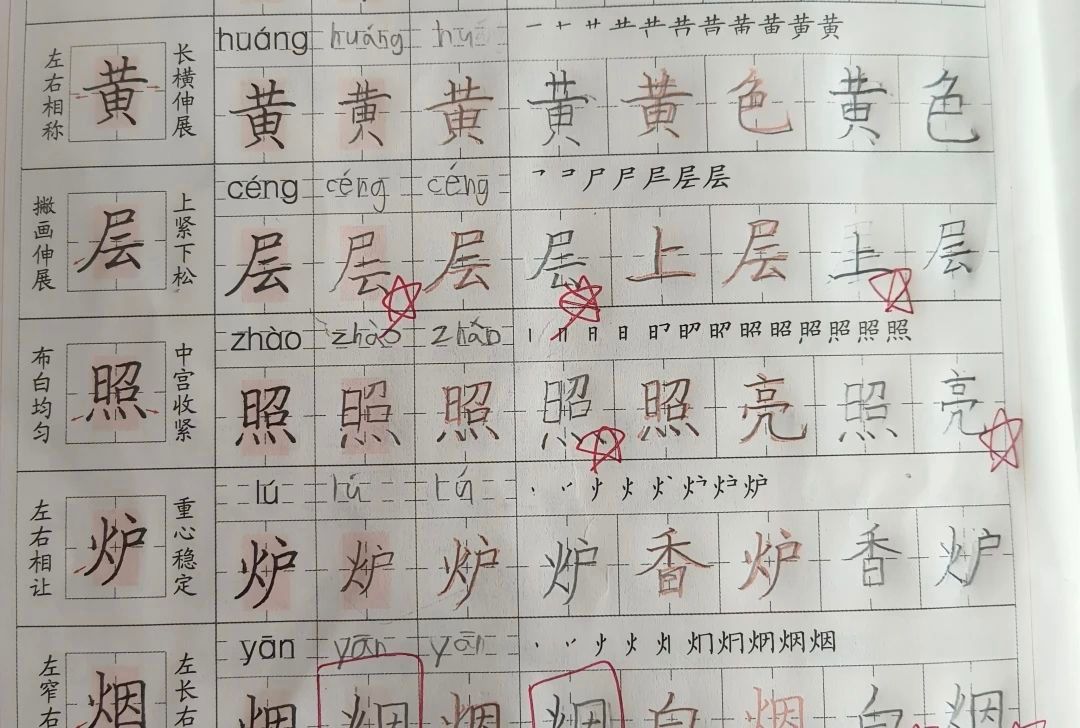 huáng huáng hu 一 十 艹 龷 芐 芀 芇 苗 黄 黄
左右相称 黄 长横伸展 黄 黄 黄 黄 黄 色 黄 色
céng céng céng 乛 コ 尸 尸 层 层 层
撇画伸展 层 上紧下松 层 层 层 层 上 层 上 层
zhào zhào zhào 丨 冂 日 日 日フ 昭 昭 昭 昭 照 照 照 照
布白均匀 照 中宫收紧 照 照 照 照 照 亮 照 亮
lú lú lú 丶 丷 火 火 炉 炉 炉 炉
左右相让 炉 重心稳定 炉 炉 炉 炉 香 炉 香 炉
yān yān yān 丶 丷 火 火 灯 烟 烟 烟 烟 烟
左窄右 烟 左长右 烟 烟 烟 烟 白 烟 白 烟